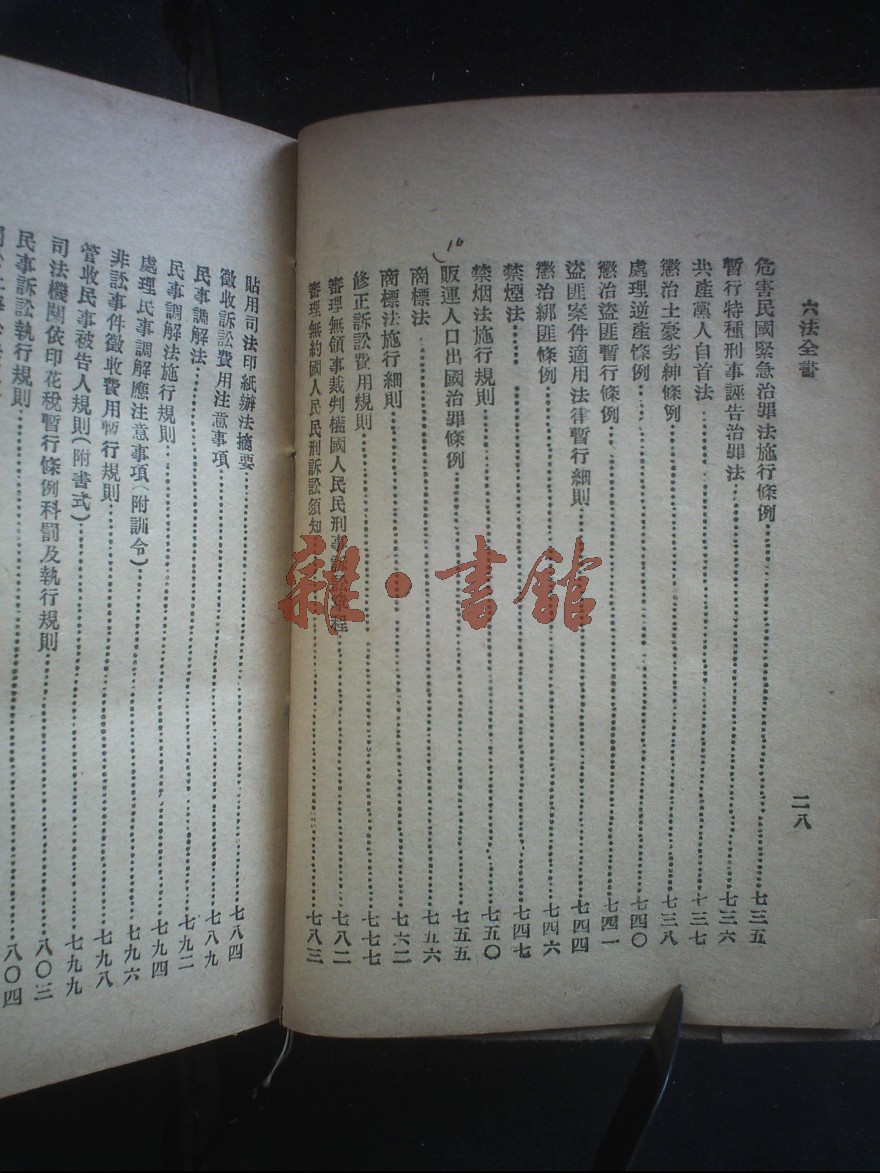 六法全書
二八
危害民國緊急治罪法施行條例 七三五
暫行特種刑事誣告治罪法 七三六
共產黨人自首法 七三七
懲治土豪劣紳條例 七三八
處理逆產條例 七四〇
懲治盜匪暫行條例 七四一
盜匪案件適用法律暫行細則 七四四
懲治綁匪條例 七四六
禁煙法 七四七
禁烟法施行規則 七五〇
販運人口出國治罪條例 七五五
商標法 七五六
商標法施行細則 七六二
修正訴訟費用規則 七七七
審理無領事裁判權國人民民刑事訴訟章程 七八二
審理無約國人民民刑訴訟須知 七八三
貼用司法印紙辦法摘要 七八四
徵收訴訟費用注意事項 七八九
民事調解法 七九二
民事調解法施行規則 七九四
處理民事調解應注意事項(附訓令) 七九六
非訟事件徵收費用暫行規則 七九八
管收民事被告人規則(附書式) 七九九
司法機關依印花稅暫行條例科罰及執行規則 八〇三
民事訴訟執行規則 八〇四
雜·書館